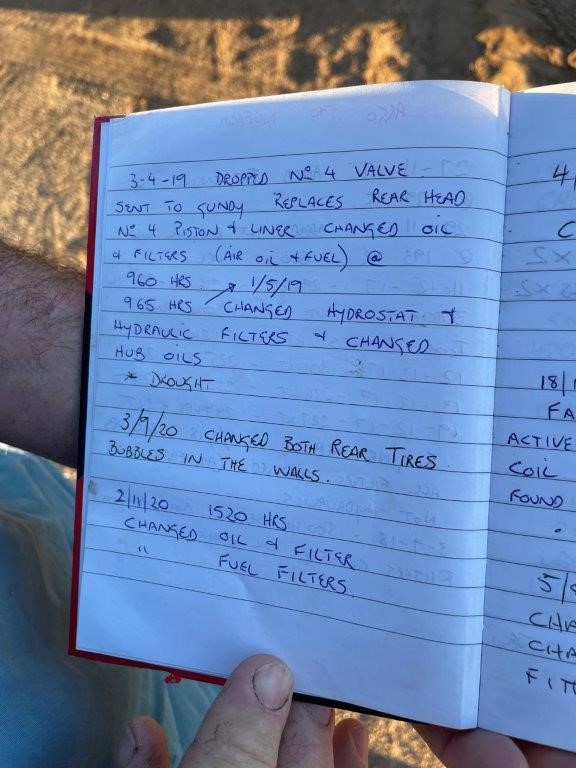 3-4-19 DROPPED Nº 4 VALVE.
SENT TO GUNDY REPLACES REAR HEAD
Nº 4 PISTON & LINER CHANGED OIL
& FILTERS (AIR OIL & FUEL) @
960 HRS 1/5/19
965 HRS CHANGED HYDROSTAT &
HYDRAULIC FILTERS & CHANGED
HUB OILS
* DROUGHT
3/9/20 CHANGED BOTH REAR TIRES
BUBBLES IN THE WALLS.
2/11/20 1520 HRS
CHANGED OIL & FILTER
" FUEL FILTERS
18/1
FA
ACTIVE
COIL
FOUND
5/
CHA
CHA
FIT